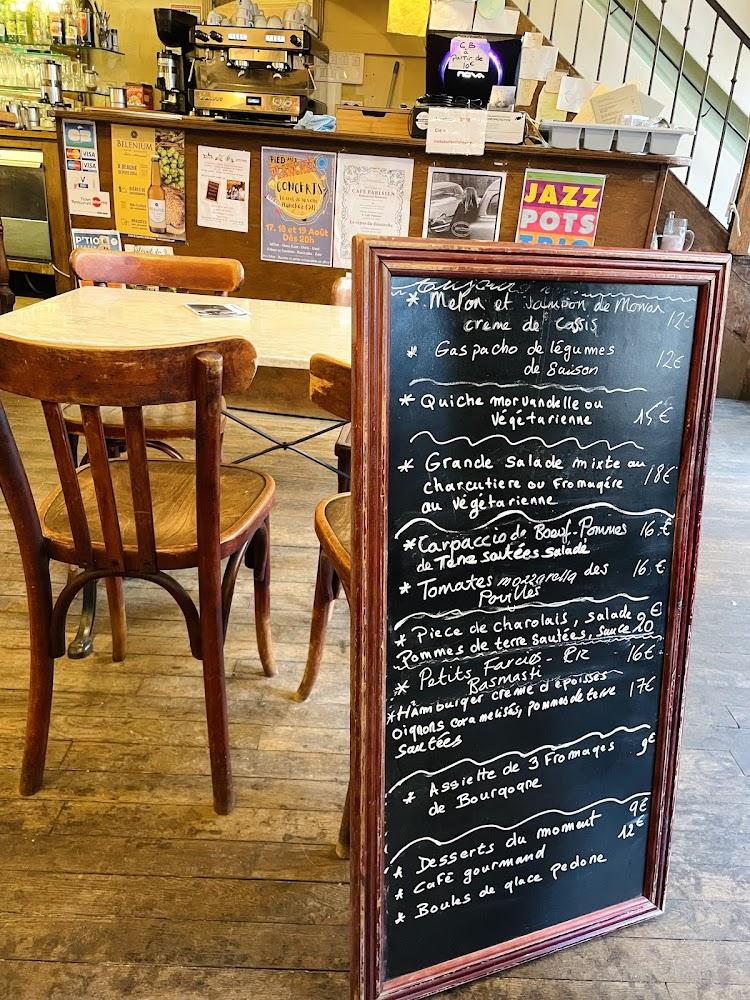 CB
à
partir de
10€
nova
VISA
VISA
BELENIUM
À BEAUNE
PIED AUX
PLANCHES
CONCERTS
17. 18 et 19 Août
Dès 20h
CAFÉ PARISIEN
JAZZ
POTS
TRIO
* Melon et Jambon de Morvan 12€
creme de cassis
* Gaspacho de légumes 12€
de saison
* Quiche morvandelle ou 15€
végétarienne
* Grande salade mixte au 18€
charcutiere ou Fromagére
au végétarienne
* Carpaccio de Boeuf-Pommes 16.€
de Terre sautées salade
* Tomates mozzarella des 16.€
Pouilles
* Piece de charolais, salade €
Pommes de terre sautées, sauce 20
* Petits Farcis - Riz 16€
Basmasti
* Hamburger creme d'époisses 17€
oignons caramelisés, pommes de terre
sautées
* Assiette de 3 Fromages 9€
de Bourgogne
* Desserts du moment 9€
* Café gourmand 12€
* Boules de glace pedone